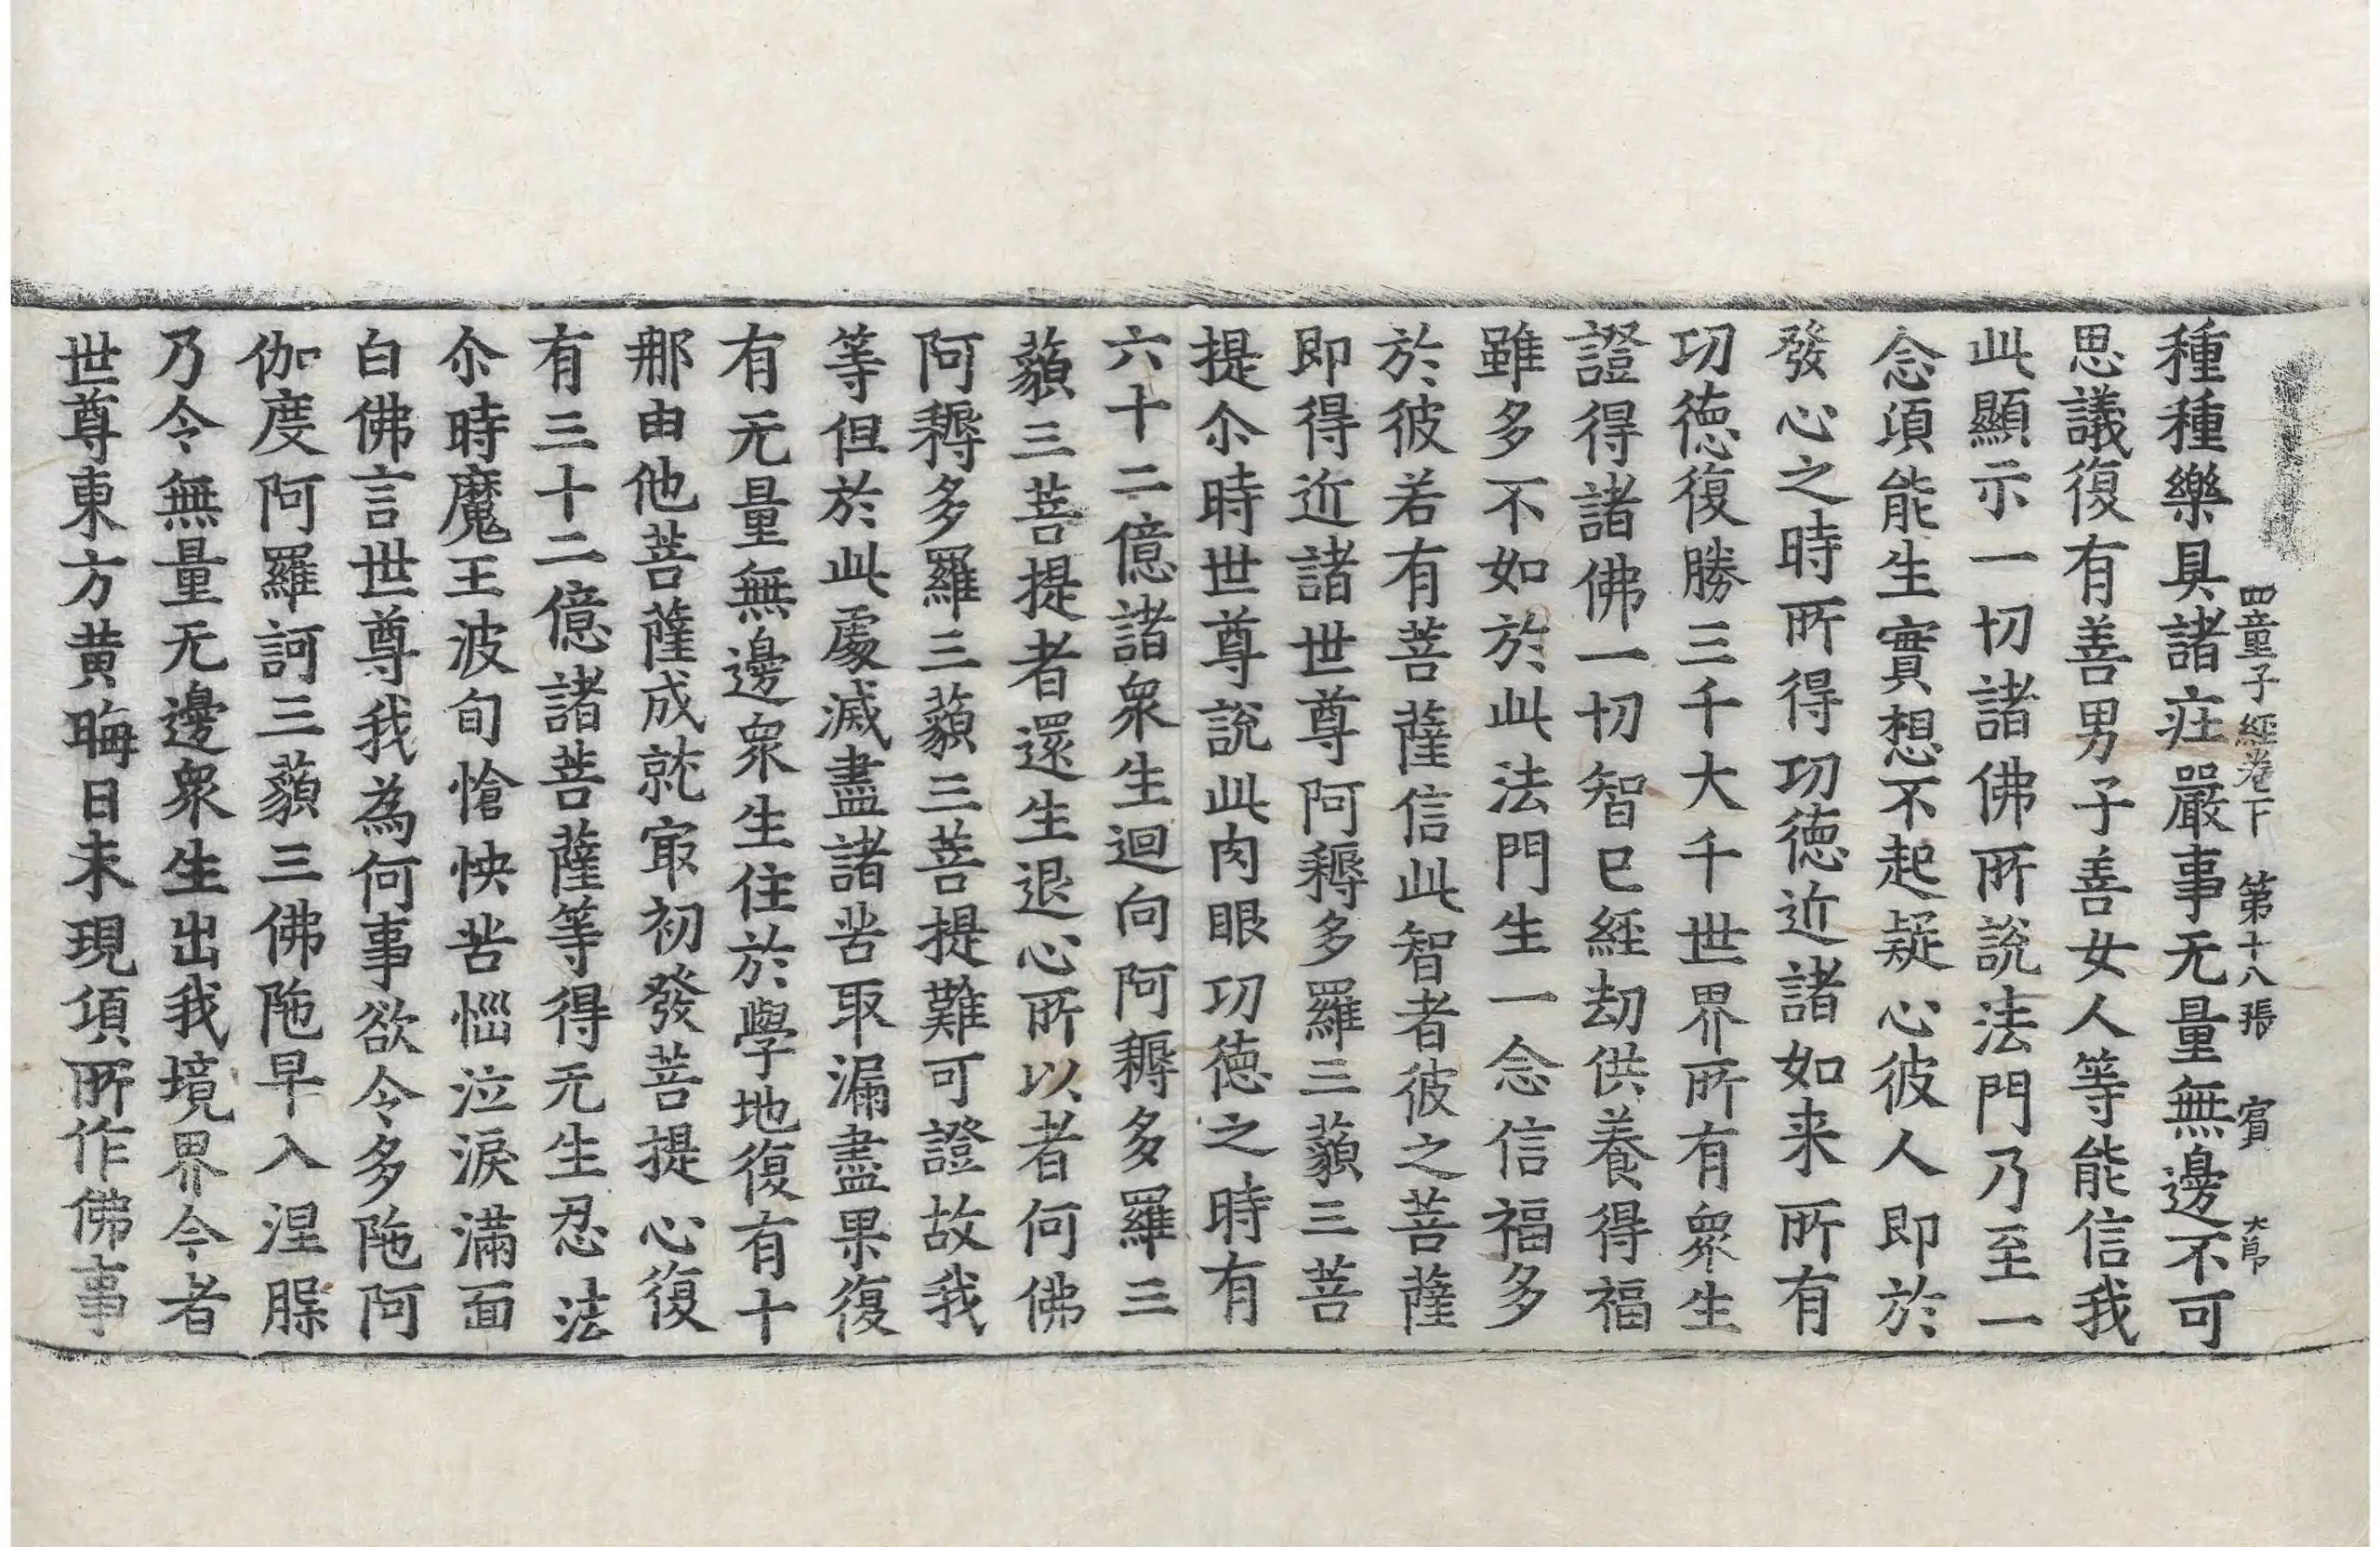 四童子經卷下 第十八張 賓 大邑
種種樂具諸庄嚴事无量無邊不可
思議復有善男子善女人等能信我
此顯示一切諸佛所說法門乃至一
念頃能生實想不起疑心彼人即於
發心之時所得功德近諸如来所有
功德復勝三千大千世界所有衆生
證得諸佛一切智已經劫供養得福
雖多不如於此法門生一念信福多
於彼若有菩薩信此智者彼之菩薩
即得近諸世尊阿耨多羅三藐三菩
提尒時世尊說此肉眼功德之時有
六十二億諸衆生迴向阿耨多羅三
藐三菩提者還生退心所以者何佛
阿耨多羅三藐三菩提難可證故我
等但於此處滅盡諸苦取漏盡果復
有无量無邊衆生住於學地復有十
那由他菩薩成就㝡初發菩提心復
有三十二億諸菩薩等得无生忍法
尒時魔王波旬愴怏苦惱泣淚滿面
白佛言世尊我為何事欲令多陁阿
伽度阿羅訶三藐三佛陁早入涅脲
乃令無量无邊衆生出我境界今者
世尊東方黄晦日未現頃所作佛事